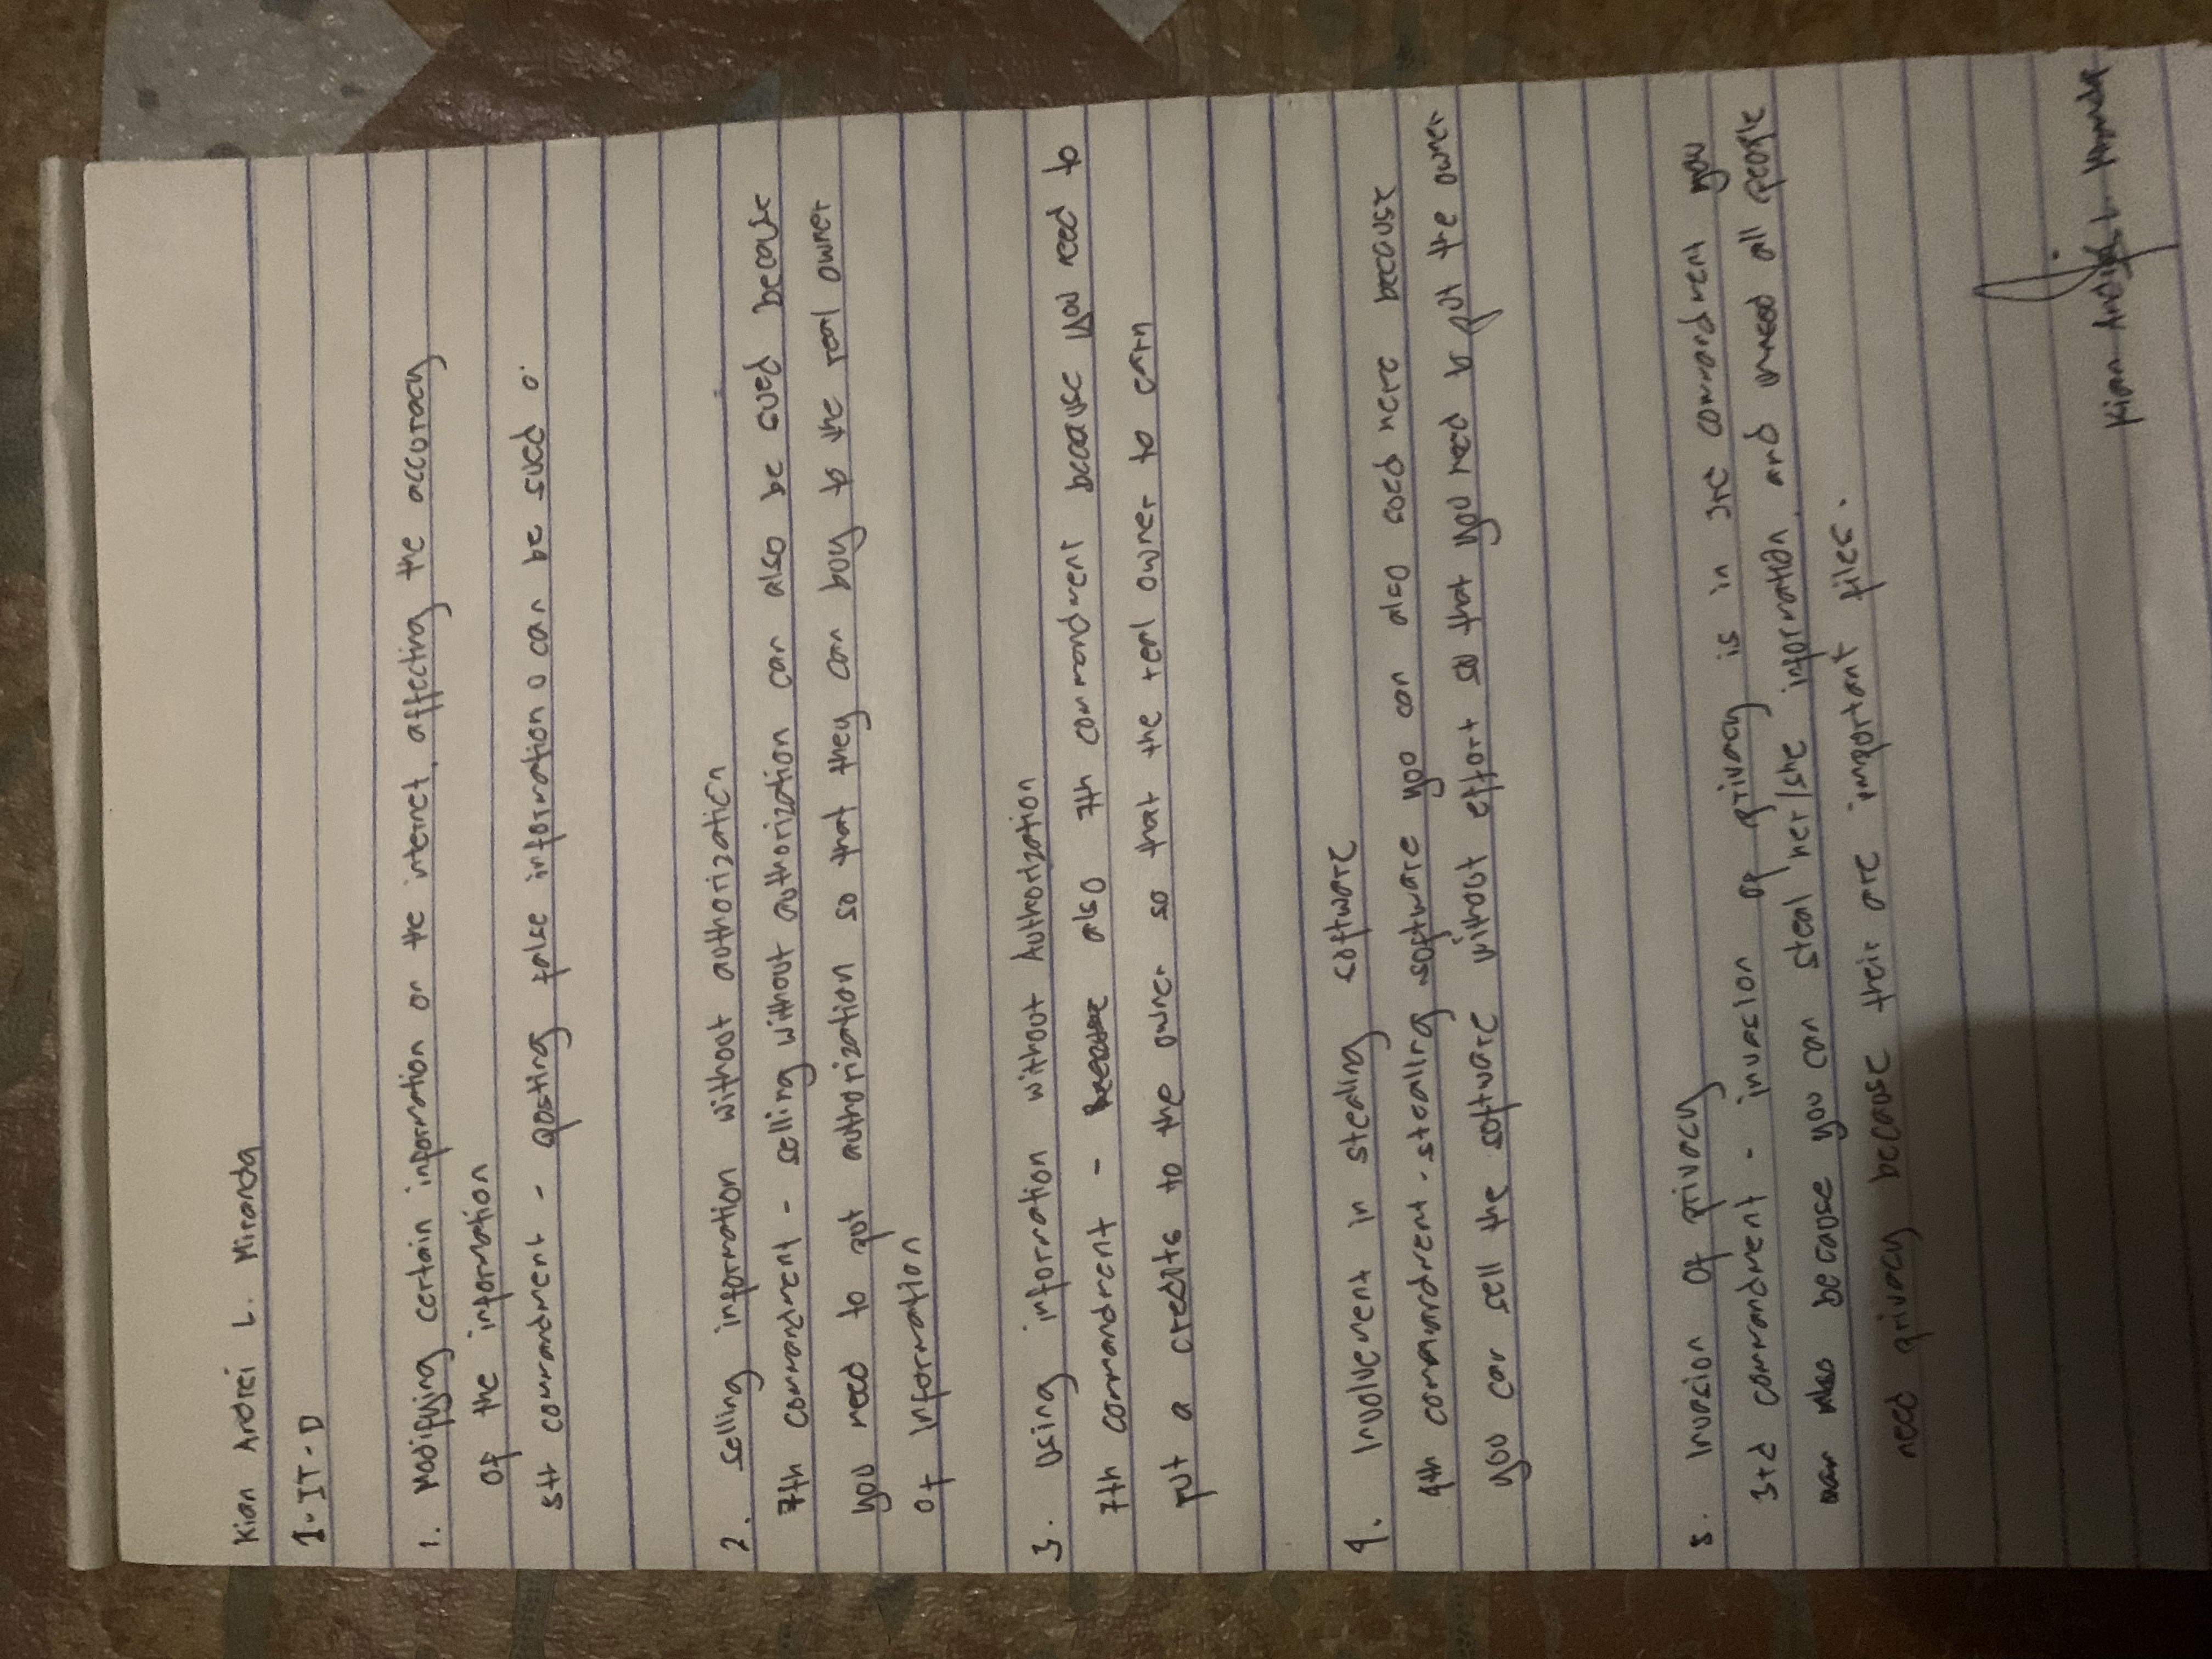 Kian Andrei L. Miranda
1-IT-D
1. Modifying certain information on the internet, affecting the accuracy
of the information
5th commandment - posting false information o can be sued o
2. selling information without authorization
7th commandment - selling without authorization can also be sued because
you need to put authorization so that they can buy to the real owner
of Information
3. Using information without Authorization
7th commandment - also 7th commandment because you need to
put a credits to the owner so that the real owner to earn
4. Involvement in stealing software
4th commandment - stealing software you can also sued here because
you can sell the software without effort so that you need to put the owner
5. Invasion of privacy
3rd commandment - invasion of privacy is in 3rd commandment you
because you can steal her/she information, and all people
need privacy because their are important files.
Kian Andrei L. Miranda